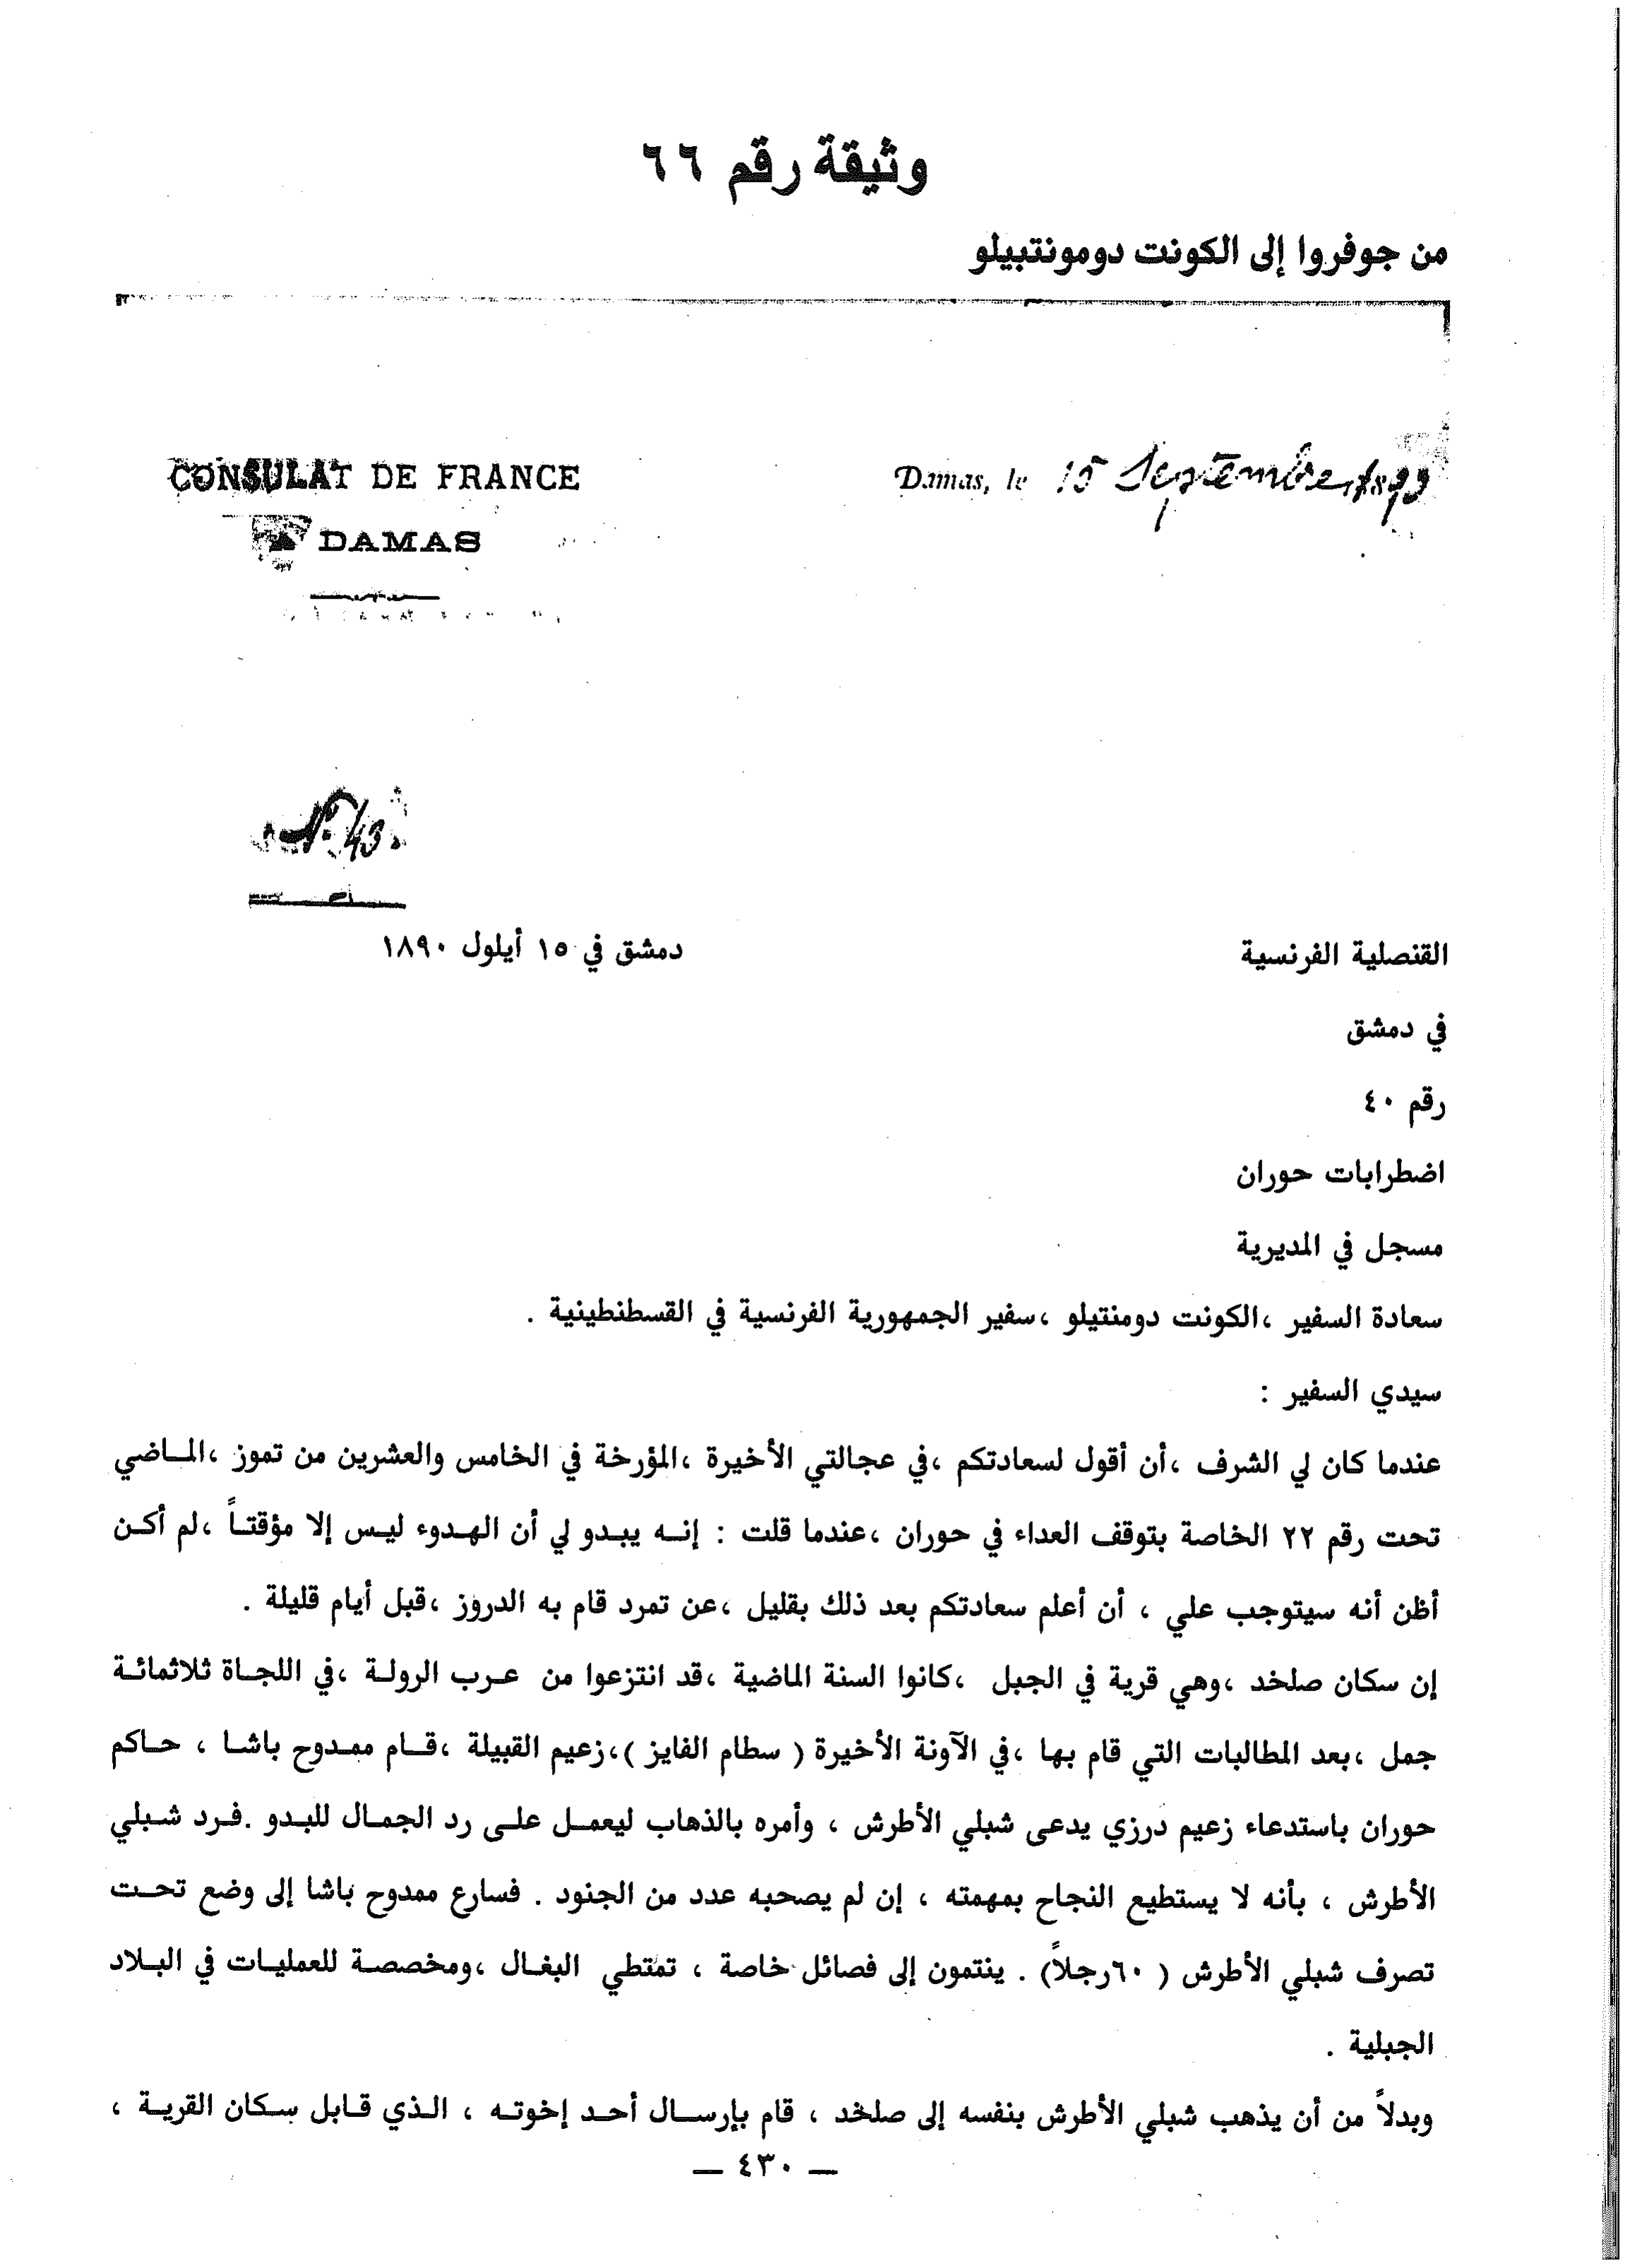 وثيقة رقم ٦٦
من جوفروا إلى الكونت دومونتبيلو
CONSULAT DE FRANCE
Damas, le 15 Septembre 18
A DAMAS
N° 43
دمشق في ١٥ أيلول ١٨٩٠
القنصلية الفرنسية
في دمشق
رقم ٤٠
اضطرابات حوران
مسجل في المديرية
سعادة السفير ،الكونت دومنتيلو ،سفير الجمهورية الفرنسية في القسطنطينية .
سيدي السفير :
عندما كان لي الشرف ،أن أقول لسعادتكم ،في عجالتي الأخيرة ،المؤرخة في الخامس والعشرين من تموز ،الماضي
تحت رقم ٢٢ الخاصة بتوقف العداء في حوران ،عندما قلت : إنه يبدو لي أن الهدوء ليس إلا مؤقتاً ،لم أكن
أظن أنه سيتوجب علي ، أن أعلم سعادتكم بعد ذلك بقليل ،عن تمرد قام به الدروز ،قبل أيام قليلة .
إن سكان صلخد ،وهي قرية في الجبل ،كانوا السنة الماضية ،قد انتزعوا من عرب الرولة ،في اللجاة ثلاثمائة
جمل ،بعد المطالبات التي قام بها ،في الآونة الأخيرة ( سطام الفايز )،زعيم القبيلة ،قام ممدوح باشا ، حاكم
حوران باستدعاء زعيم درزي يدعى شبلي الأطرش ، وأمره بالذهاب ليعمل على رد الجمال للبدو .فرد شبلي
الأطرش ، بأنه لا يستطيع النجاح بمهمته ، إن لم يصحبه عدد من الجنود . فسارع ممدوح باشا إلى وضع تحت
تصرف شبلي الأطرش ( ٦٠رجلاً) . ينتمون إلى فصائل خاصة ، تمتطي البغال ،ومخصصة للعمليات في البلاد
الجبلية .
وبدلاً من أن يذهب شبلي الأطرش بنفسه إلى صلخد ، قام بإرسال أحد إخوته ، الذي قابل سكان القرية ،
— ٤٣٠ —